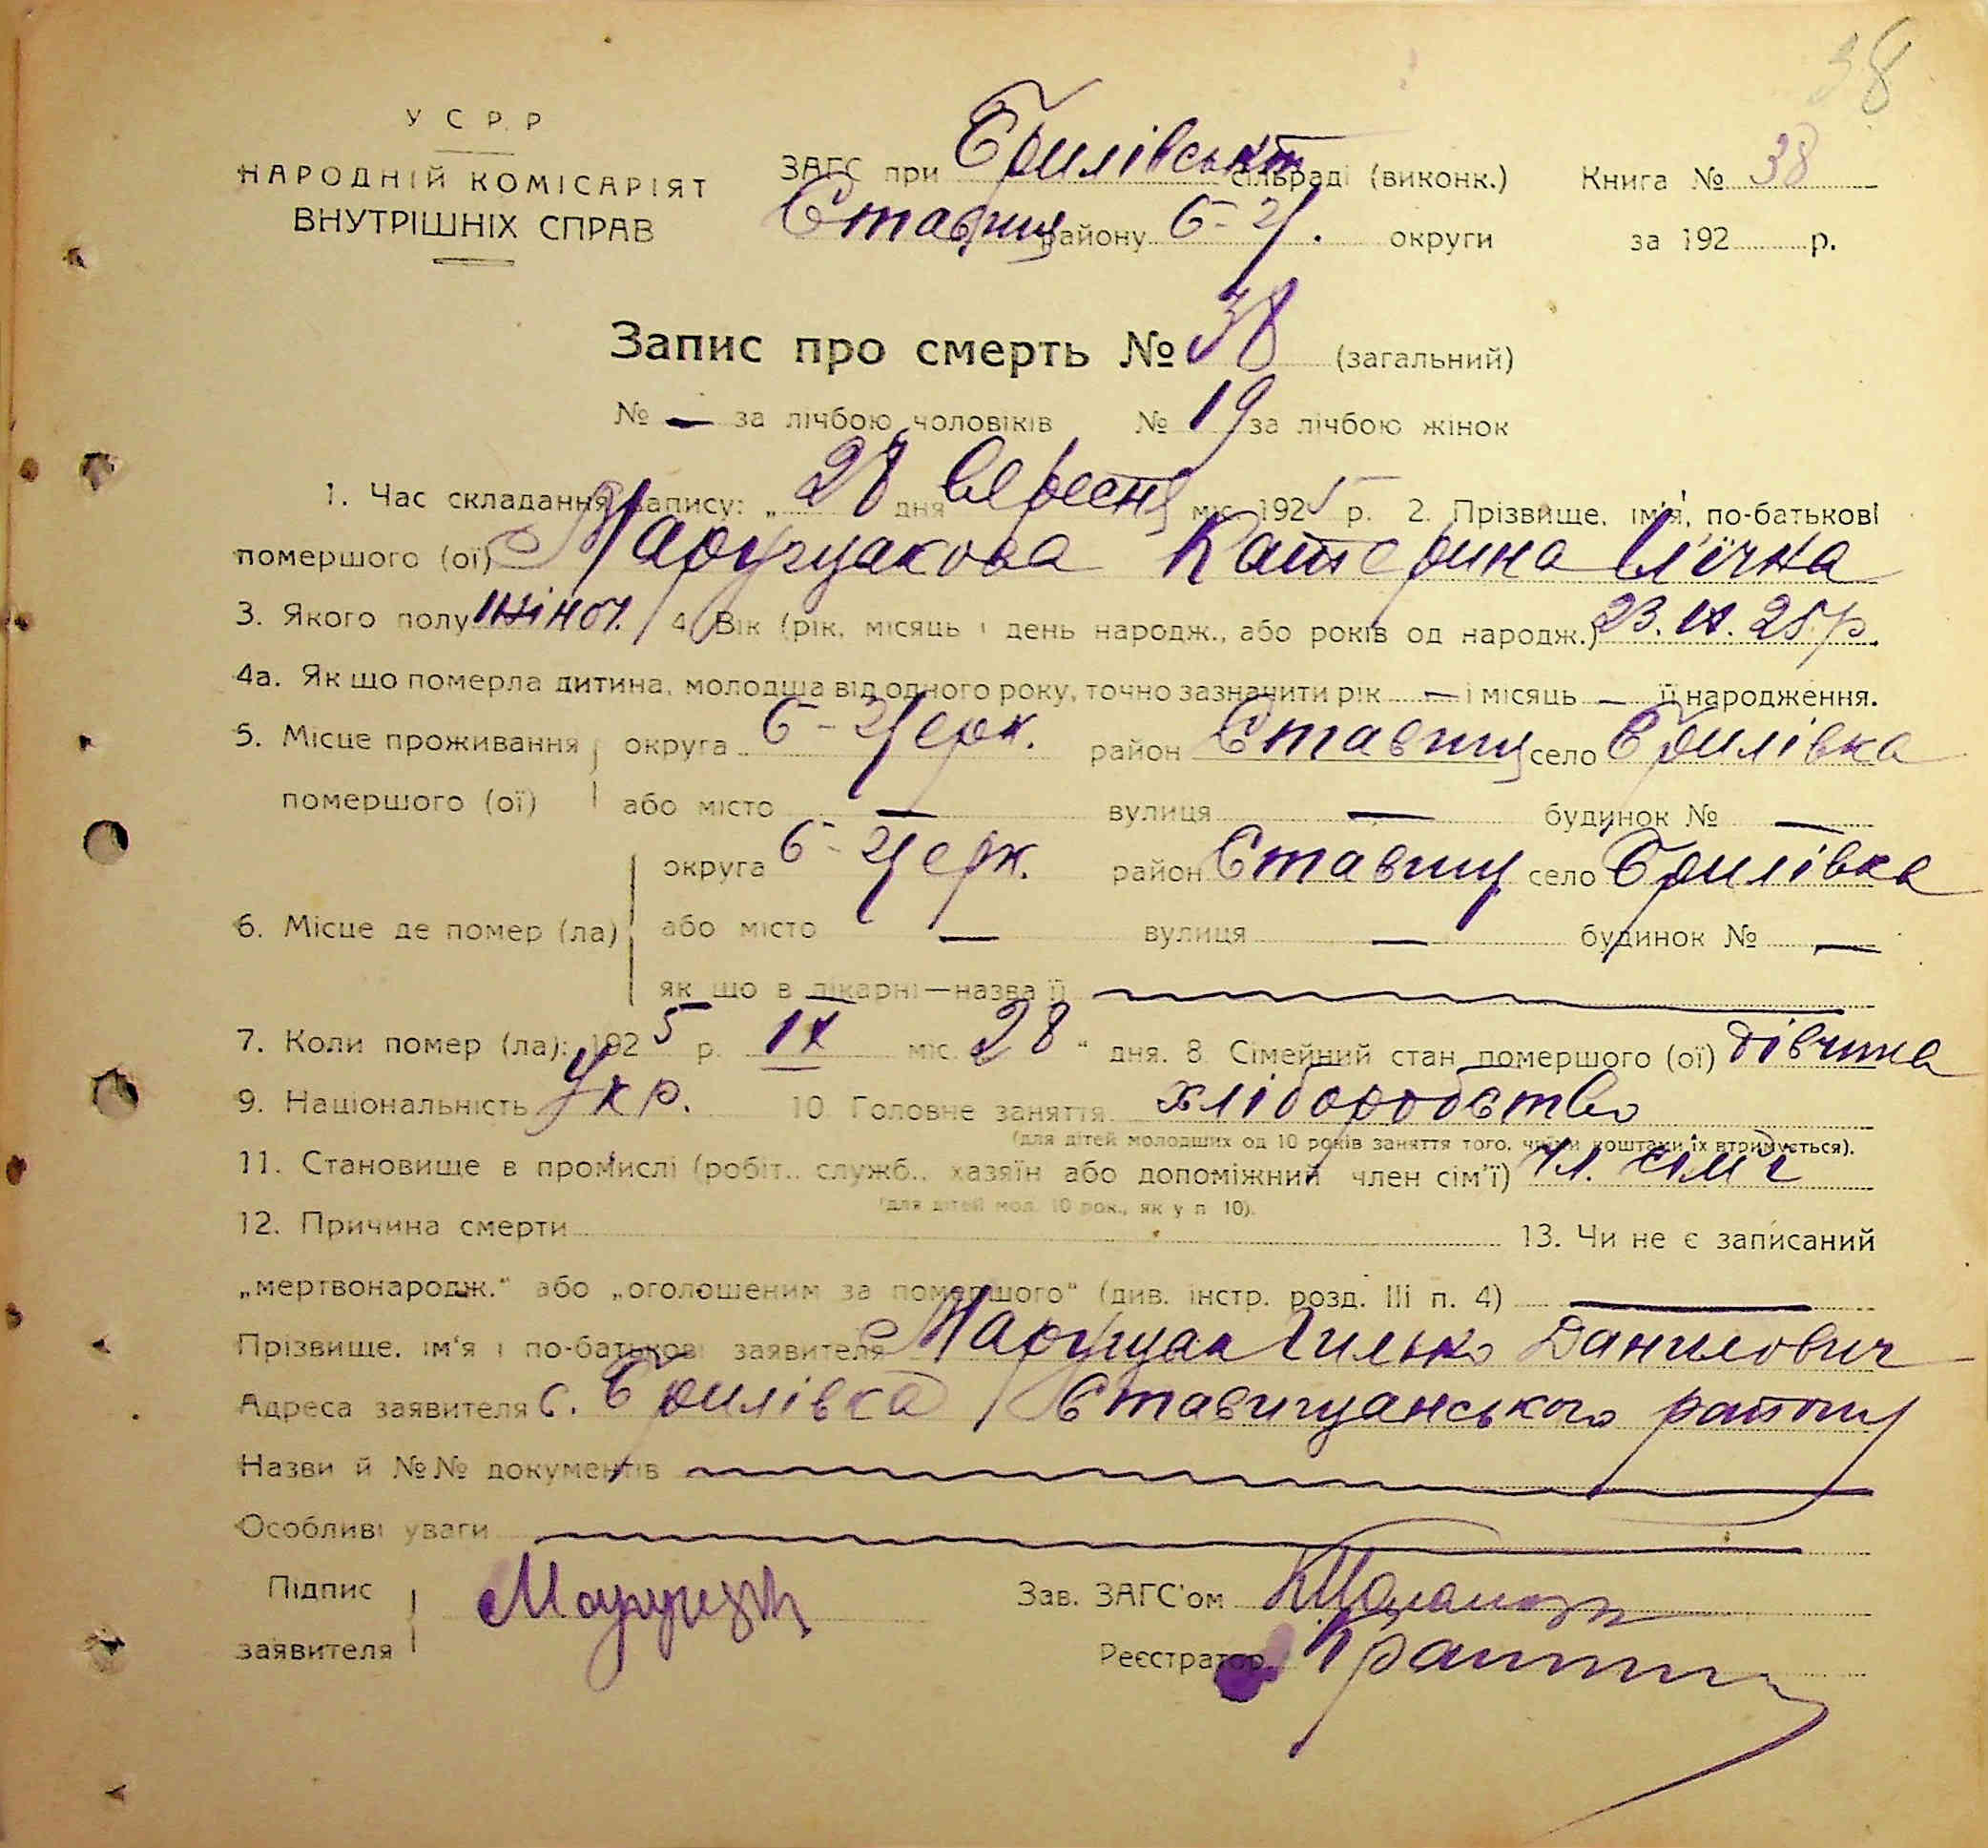 38
У С Р Р
НАРОДНІЙ КОМІСАРІЯТ
ВНУТРІШНІХ СПРАВ
ЗАГС при Брилівській сільраді (виконк.) Книга № 38
Ставищ району Б-Ц. округи за 192 р.
Запис про смерть № 38 (загальний)
№ — за лічбою чоловіків № 19 за лічбою жінок
1. Час складання запису: „ 28 дня вересня міс. 1925 р. 2. Прізвище, ім'я, по-батькові
помершого (ої) Маружчакова Катерина Іл'їчна
3. Якого полу жіноч. 4. Вік (рік, місяць і день народж., або років од народж.) 23. IX. 25 р.
4а. Як що померла дитина, молодша від одного року, точно зазначити рік — і місяць — її народження.
5. Місце проживання округа Б-Церк. район Ставищ село Брилівка
помершого (ої) або місто — вулиця — будинок № —
округа Б-Церк. район Ставищ село Брилівка
6. Місце де помер (ла) або місто — вулиця — будинок № —
як що в лікарні—назва її
7. Коли помер (ла): 1925 р. IX міс. 28 " дня. 8. Сімейний стан помершого (ої) дівчина
9. Національність Укр. 10. Головне заняття хліборобство
(для дітей молодших од 10 років заняття того, чиїми коштами їх втримується).
11. Становище в промислі (робіт., служб., хазяїн або допоміжний член сім'ї) чл. сім'ї
(для дітей мол. 10 рок., як у п. 10).
12. Причина смерти 13. Чи не є записаний
„мертвонародж." або „оголошеним за помершого" (див. інстр. розд. III п. 4) —
Прізвище, ім'я і по-батькові заявителя Ілько Данилович
Адреса заявителя с. Брилівка Ставищанського району
Назви й №№ документів
Особливі уваги
Підпис Зав. ЗАГС'ом
заявителя Реєстратор